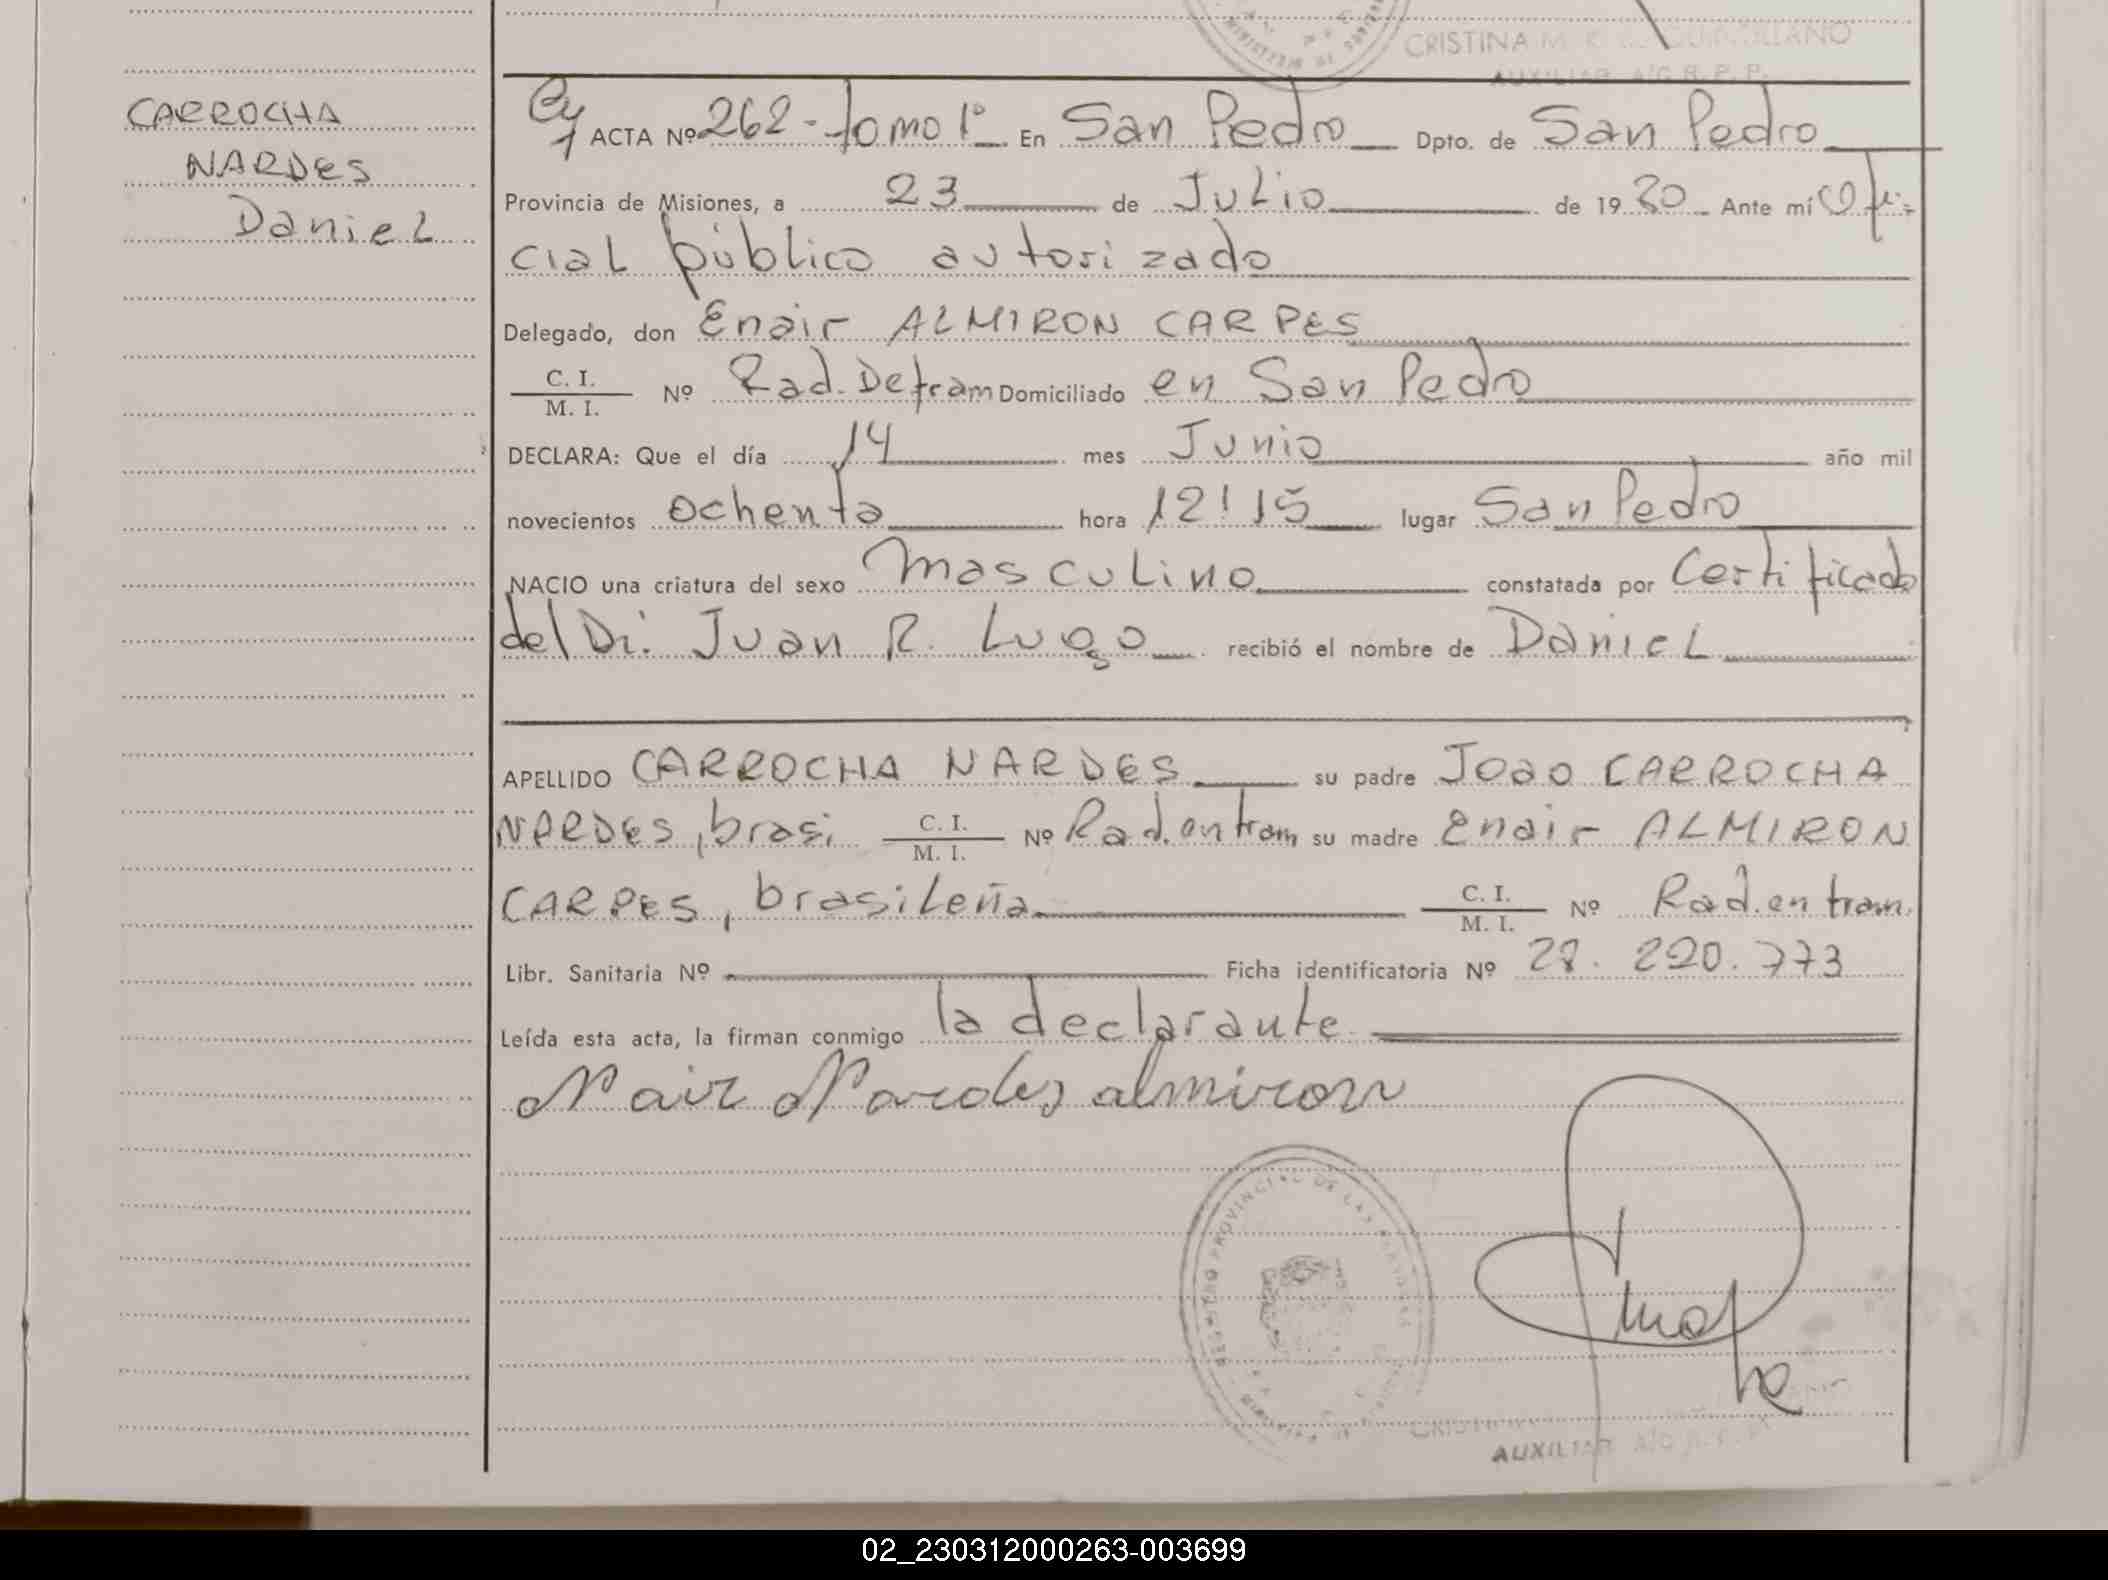 CRISTINA M.
AUXILIAR A/C R. P. P.
CARROCHA
NARDES
Daniel
ACTA Nº 262 - Tomo 1º En San Pedro Dpto. de San Pedro
Provincia de Misiones, a 23 de Julio de 1980 Ante mí Ofi-
cial público autorizado
Delegado, don Enair ALMIRON CARPES
C. I. / M. I. Nº Rad. De tram Domiciliado en San Pedro
DECLARA: Que el día 14 mes Junio año mil
novecientos ochenta hora 12:15 lugar San Pedro
NACIO una criatura del sexo masculino constatada por Certificado
del Dr. Juan R. Lugo recibió el nombre de Daniel
APELLIDO CARROCHA NARDES su padre Joao CARROCHA
NARDES, brasi C. I. / M. I. Nº Rad. en tram su madre Enair ALMIRON
CARPES, brasileña C. I. / M. I. Nº Rad. en tram.
Libr. Sanitaria Nº Ficha identificatoria Nº 28. 220. 773
Leída esta acta, la firman conmigo la declarante.
Nair Nardes almiron
REGISTRO PROVINCIAL DE LAS PERSONAS
AUXILIAR A/C R. P. P.
02_230312000263-003699